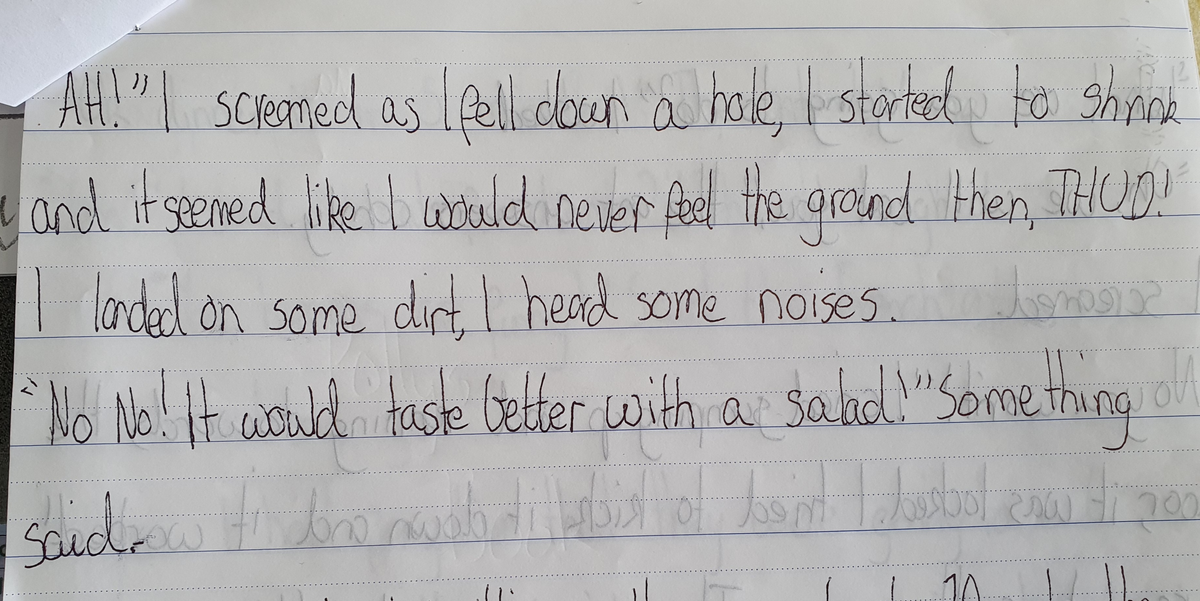 AH!" I screamed as I fell down a hole, I started to shrink
and it seemed like I would never feel the ground then, THUD!
I landed on some dirt, I heard some noises.
"No No! It would taste better with a salad!" Something
said.